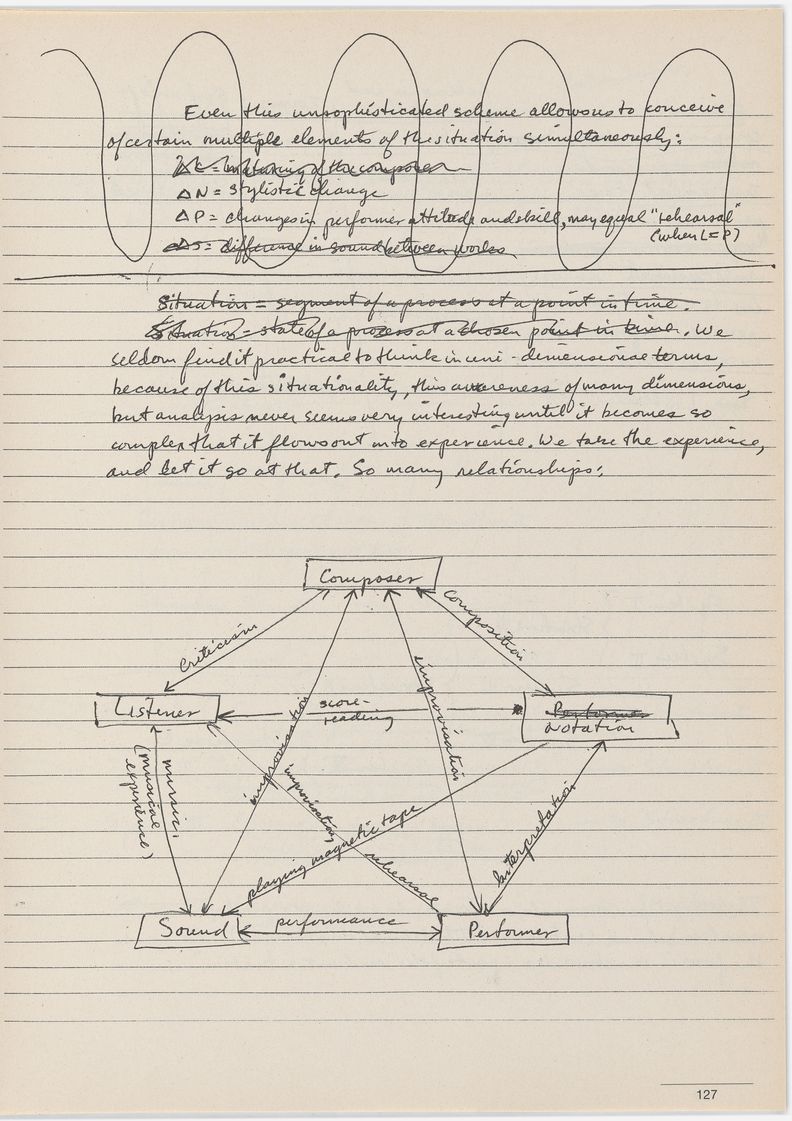 Even this unsophisticated scheme allows us to conceive
of certain multiple elements of the situation simultaneously:
of the composer
ΔN = stylistic change
ΔP = changes in performer attitude and skill, may equal "rehearsal"
(when L = P)
ΔS = difference in sound between works.
Situation = segment of a process at a point in time.
Situation = state of a process at a chosen point in time. We
seldom find it practical to think in uni-dimensional terms,
because of this situationality, this awareness of many dimensions,
but analysis never seems very interesting until it becomes so
complex that it flows out into experience. We take the experience,
and let it go at that. So many relationships:
Composer
criticism
composition
Listener
score-
reading
Performer
Notation
improvisation
improvisation
music.
(musical
experience)
improvisation,
rehearsal
playing magnetic tape
Interpretation
Sound
performance
Performer
127